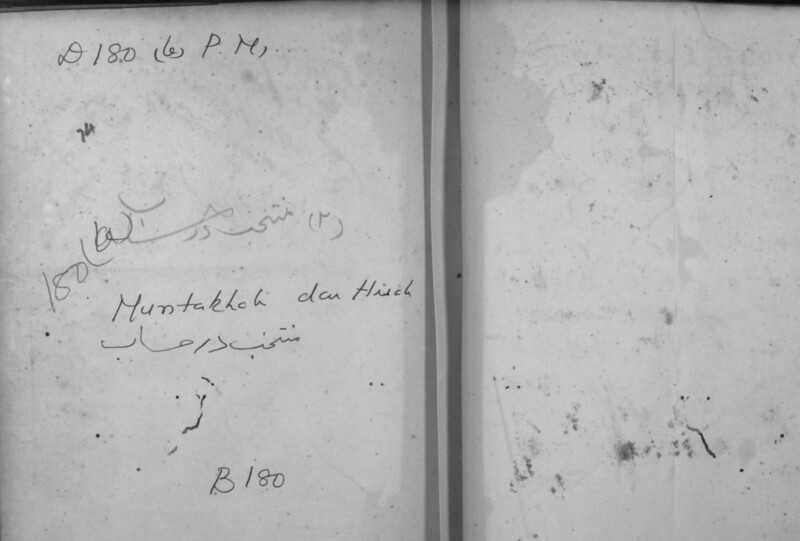 D 180 (b) P.M,
74
(۲) منتخب در حساب
180 (b)
Muntakhab dar Hisab
منتخب در حساب
B 180